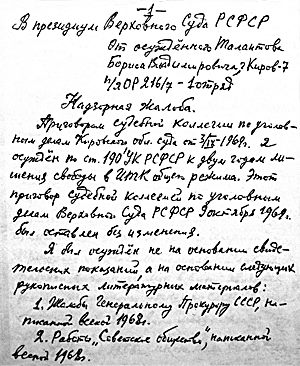 – 1 –
В президиум Верховного Суда РСФСР
От осуждённого Талантова
Бориса Владимировича г Киров-7
п/я ОР 216/7 - 1 отряд
Надзорная жалоба.
Приговором судебной коллегии по уголов-
ным делам Кировского обл. суда от 3/IX-1969г. я
осуждён по ст. 190 УК РСФСР к двум годам ли-
шения свободы в ИТК общего режима. Этот
приговор судебной коллегией по уголовным
делам Верховного Суда РСФСР 9 октября 1969г.
был оставлен без изменения.
Я был осуждён не на основании свиде-
тельских показаний, а на основании следующих
рукописных литературных материалов:
1. Жалобы Генеральному Прокурору СССР, на-
писанной весной 1968г.
2. Работы „Советское общество", написанной
весной 1968г.